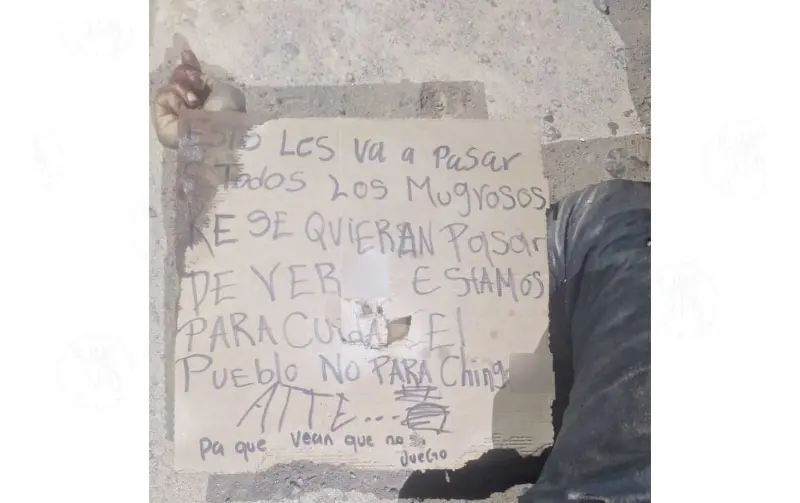 ESTO LES Va a Pasar
a Todos LOS Mugrosos
KE SE QUIERAN Pasar
DE VER ESTAMOS
PARA CUIDA El
PUEBLO NO PARA Ching
ATTE...
Pa que vean que no
JUEGO